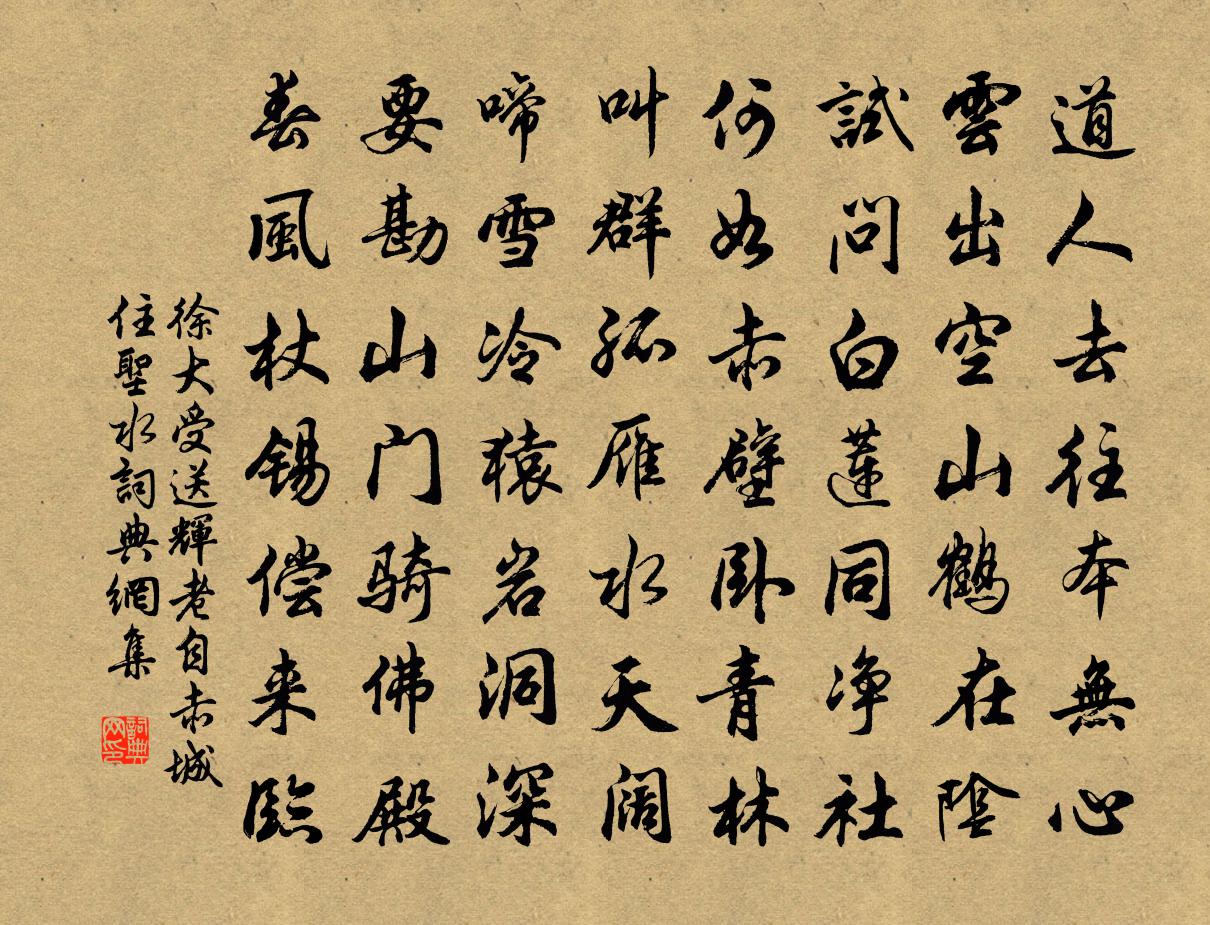 道人去往本無心
雲出空山鹤在陰
試問白蓮同净社
何如赤壁卧青林
叫群孤雁水天阔
啼雪冷猿岩洞深
要勘山门骑佛殿
春風杖锡偿来臨
徐大受送輝老自赤城
住聖水詞典網集
詞典网印